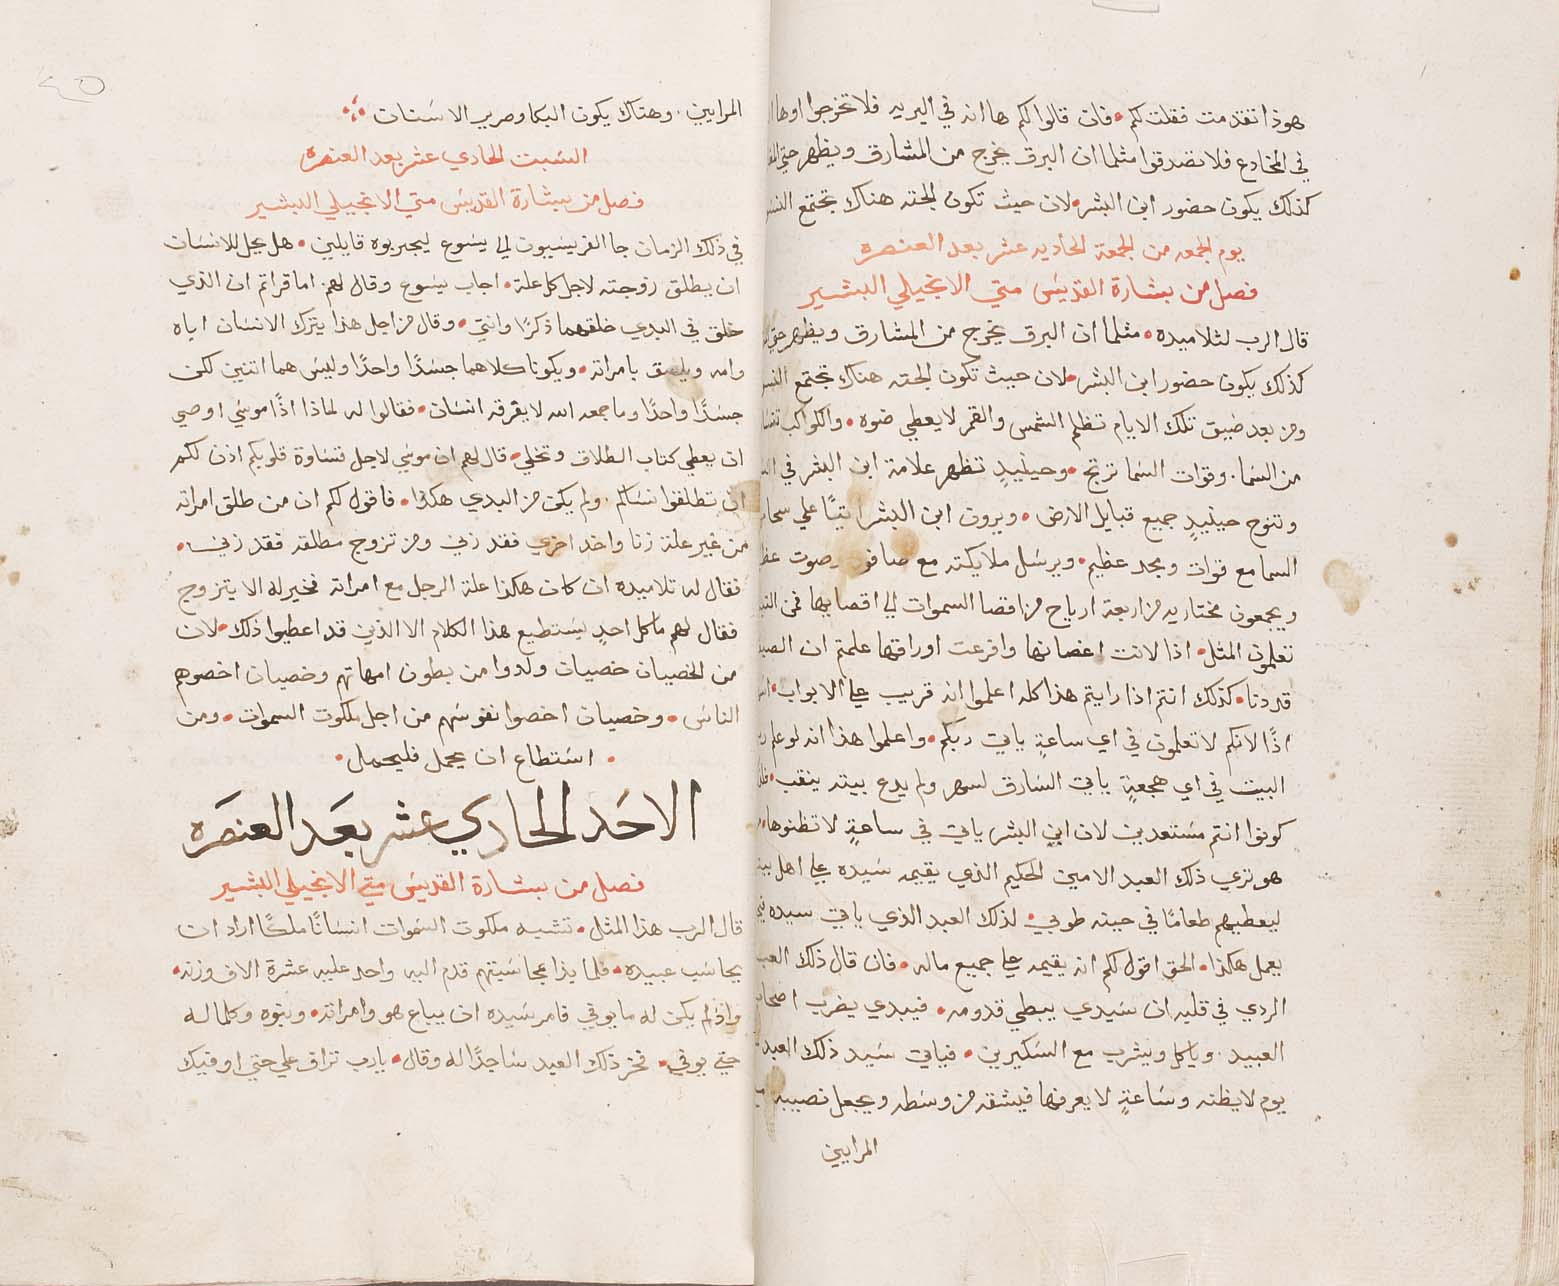 هوذا تقدمت فقلت لكم • فان قالوا لكم ها انه في البريه فلا تخرجوا اوها
في المخادع فلا تصدقوا مثلما ان البرق يخرج من المشارق ويظهر حتي
كذلك يكون حضور ابن البشر • لان حيث تكون الجثه هناك تجتمع
يوم الجمعه من الجمعة الحاديه عشر بعد العنصره
فصل من بشارة القديس متي الانجيلي البشير
قال الرب لتلاميده • مثلما ان البرق يخرج من المشارق ويظهر
كذلك يكون حضور ابن البشر • لان حيث تكون الجثه هناك تجتمع
ومن بعد ضيق تلك الايام تظلم الشمس والقمر لا يعطي ضوه • والكواكب
من السما. وقوات السما ترتج • وحينيدٍ تظهر علامة ابن البشر في
وتنوح حينيدٍ جميع قبايل الارض • ويرون ابن البشر اتيًا علي
السما مع قوات ومجد عظيم • ويرسل ملايكته مع صوت
ويجمعون مختاريه من اربعة ارياح من اقصا السموات الي اقصايها فمن
تعلمون المثل • اذا لانت اغصانها وافرعت اوراقها علمتم ان
قد دنا • كذلك انتم اذا رايتم هذا كله اعلموا انه قريب علي الابواب •
اذًا لانكم لا تعلمون في اي ساعةٍ ياتي ربكم • واعلموا هذا انه لو علم
البيت في اي هجعةٍ ياتي السارق لسهر ولم يدع بيته ينقب •
كونوا انتم مستعدين لان ابن البشر ياتي في ساعةٍ لا تظنوها •
هو تري ذلك العبد الامين الحكيم الذي يقيمه سيده علي اهل
ليعطيهم طعامًا في حينه طوبي • لذلك العبد الذي ياتي سيده
يعمل هكذا • الحق اقول لكم انه يقيمه علي جميع ماله • فان قال ذلك
الردي في قلبه ان سيدي يبطي قدومه • فيبدي يضرب
العبيد. وياكل ويشرب مع السكيرين • فياتي سيد ذلك العبد
يوم لا يظنه وساعةٍ لا يعرفها فيشقه من وسطه ويجعل نصيبه
المرايين
المرايين. وهناك يكون البكا وصرير الاسنان
السبت الحادي عشر بعد العنصره
فصل من بشارة القديس متي الانجيلي البشير
في ذلك الزمان جا الفريسيون الي يسوع ليجربوه قايلين • هل يحل للانسان
ان يطلق زوجته لاجل كل علة • اجاب يسوع وقال لهم. اما قراتم ان الذي
خلق في البدي خلقهما ذكرًا وانثي • وقال من اجل هذا يترك الانسان اباه
وامه ويلصق بامراته • ويكونا كلاهما جسدًا واحدًا وليس هما اثنين لكن
جسدًا واحدًا وما جمعه الله لا يفرقه انسان • فقالوا له لماذا اذًا موسي اوصي
ان يعطي كتاب الطلاق وتخلي • قال لهم ان موسي لاجل قساوة قلوبكم اذن لكم
ان تطلقوا نساكم. ولم يكن من البدي هكذا • فاقول لكم ان من طلق امراته
من غير علة زنا واخذ اخري فقد زني ومن تزوج مطلقه فقد زني •
فقال له تلاميده ان كان هكذا علة الرجل مع امراته فخير له الا يتزوج
فقال لهم ما كل احدٍ يستطيع هذا الكلام الا الذين قد اعطيوا ذلك • لان
من الخصيان خصيان ولدوا من بطون امهاتهم وخصيان اخصوهم
الناس • وخصيان اخصوا نفوسهم من اجل ملكوت السموات • ومن
• استطاع ان يحمل فليحمل •
الاحد الحادي عشر بعد العنصره
فصل من بشارة القديس متي الانجيلي البشير
قال الرب هذا المثل • تشبه ملكوت السموات انسانًا ملكًا اراد ان
يحاسب عبيده • فلما بدا بمحاسبتهم قدم اليه واحد عليه عشرة الاف وزنه •
واذ لم يكن له ما يوفي فامر سيده ان يباع هو وامراته • وبنوه وكلما له
حتي يوفي • فخر ذلك العبد ساجدًا له وقال • يا رب تراف علي حتي اوفيك